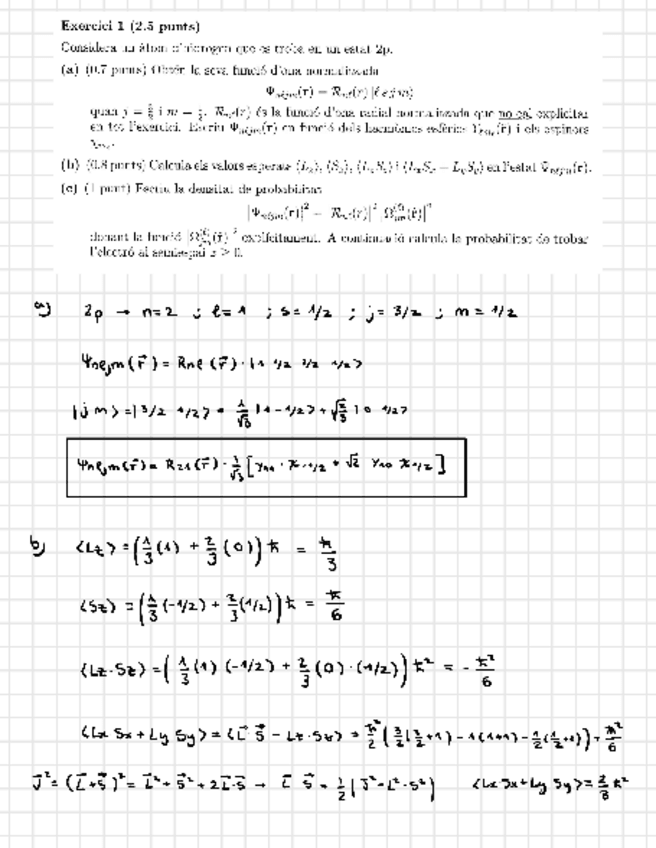 Exercici 1 (2.5 punts)
Considera un àtom d'hidrogen que es troba en un estat 2p.
(a) (0.7 punts) Obtén la seva funció d'ona normalitzada
Ψnℓjm(r) = Rnℓ(r) |ℓ s j m⟩
quan j = 3/2 i m = 1/2. Rnℓ(r) és la funció d'ona radial normalitzada que no cal explicitar
en tot l'exercici. Escriu Ψnℓjm(r) en funció dels harmònics esfèrics Yℓmℓ(r̂) i els espinors
(b) (0.8 punts) Calcula els valors esperats ⟨Lz⟩, ⟨Sz⟩, ⟨LzSz⟩ i ⟨LxSx + LySy⟩ en l'estat Ψnℓjm(r).
(c) (1 punt) Escriu la densitat de probabilitat
donant la funció explícitament. A continuació calcula la probabilitat de trobar
l'electró al semiespai z > 0.
a) 2p → n=2 ; ℓ=1 ; s=1/2 ; j=3/2 ; m=1/2
Ψnℓjm(r⃗) = Rnℓ(r⃗) · |1 1/2 3/2 1/2⟩
|j m⟩ = |3/2 1/2⟩ = 1/√3 |1 -1/2⟩ + √2/3 |0 1/2⟩
Ψnℓjm(r⃗) = R21(r⃗) · 1/√3 [Y11 · χ-1/2 + √2 Y10 χ1/2]
b) ⟨Lz⟩ = (1/3 (1) + 2/3 (0)) ħ = ħ/3
⟨Sz⟩ = (1/3 (-1/2) + 2/3 (1/2)) ħ = ħ/6
⟨Lz·Sz⟩ = (1/3 (1) (-1/2) + 2/3 (0) · (1/2)) ħ² = - ħ²/6
⟨Lx Sx + Ly Sy⟩ = ⟨L⃗ S⃗ - Lz·Sz⟩ = ħ²/2 (3/2 (3/2 +1) - 1(1+1) - 1/2 (1/2 +1)) + ħ²/6
J⃗² = (L⃗+S⃗)² = L⃗² + S⃗² + 2L⃗·S⃗ → L⃗ S⃗ = 1/2 (J⃗² - L² - S²) ⟨Lx Sx + Ly Sy⟩ = 2/3 ħ²